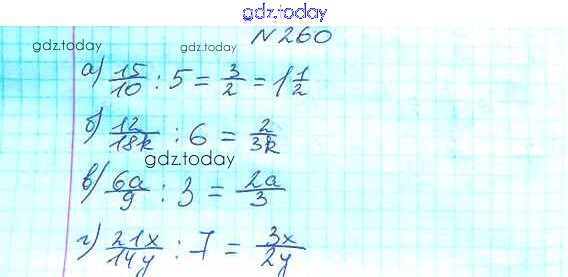 gdz.today
N 260
gdz.today gdz.today
а) 15/10 : 5 = 3/2 = 1 1/2
б) 12/18k : 6 = 2/3k
gdz.today
в) 6a/9 : 3 = 2a/3
г) 21x/14y : 7 = 3x/2y